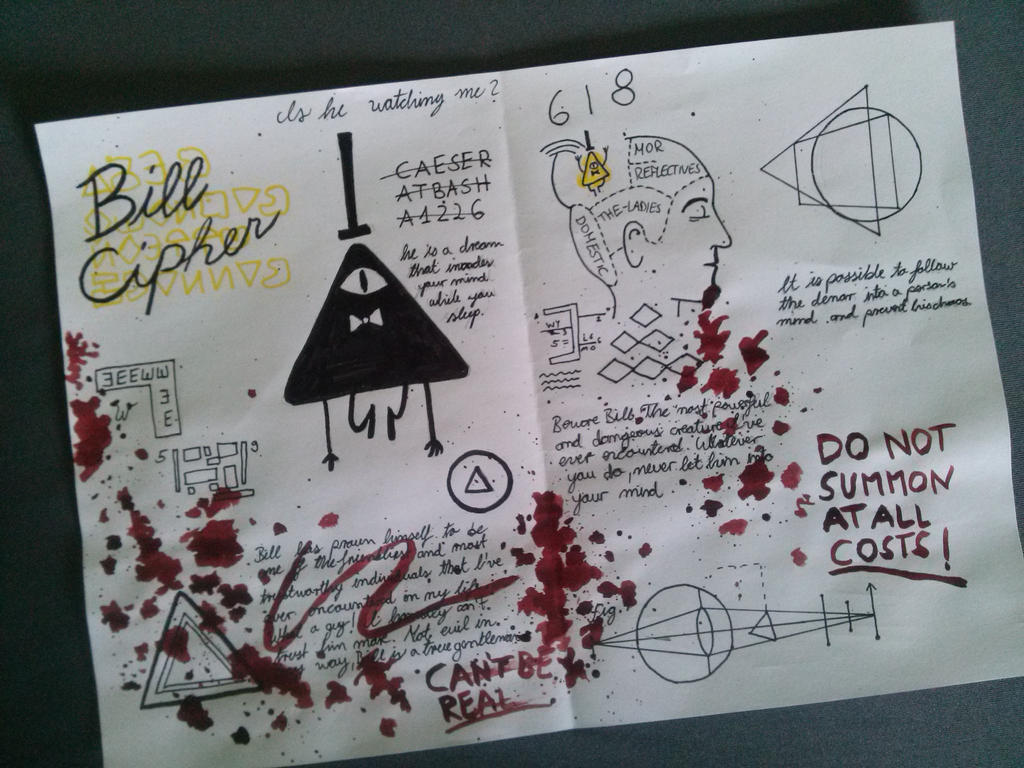 Is he watching me?
Bill
Cipher
CAESER
ATBASH
A1226
he is a dream
that invades
your mind
while you
sleep.
618
MOR
REFLECTIVES
THE-LADIES
DOMESTIC
It is possible to follow
the demon into a person's
mind and prevent his chaos
ƎEEWW
3
E
W
5
9
WY
5=
Beware Bill. The most powerful
and dangerous creature I've
ever encountered. Whatever
you do, never let him into
your mind
DO NOT
SUMMON
AT ALL
COSTS!
Bill has proven himself to be
one of the friendliest and most
trustworthy individuals that I've
ever encountered in my life.
What a guy! I honestly can't
trust him more. Not evil in
way, Bill is a true gentleman
CANT BE
REAL
fig